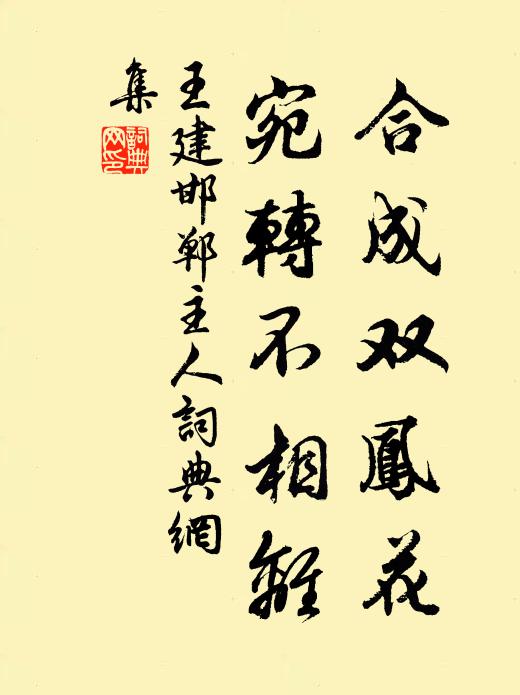 合成双鳳花
宛轉不相離
王建邯鄲主人詞典網
集
詞典
网印